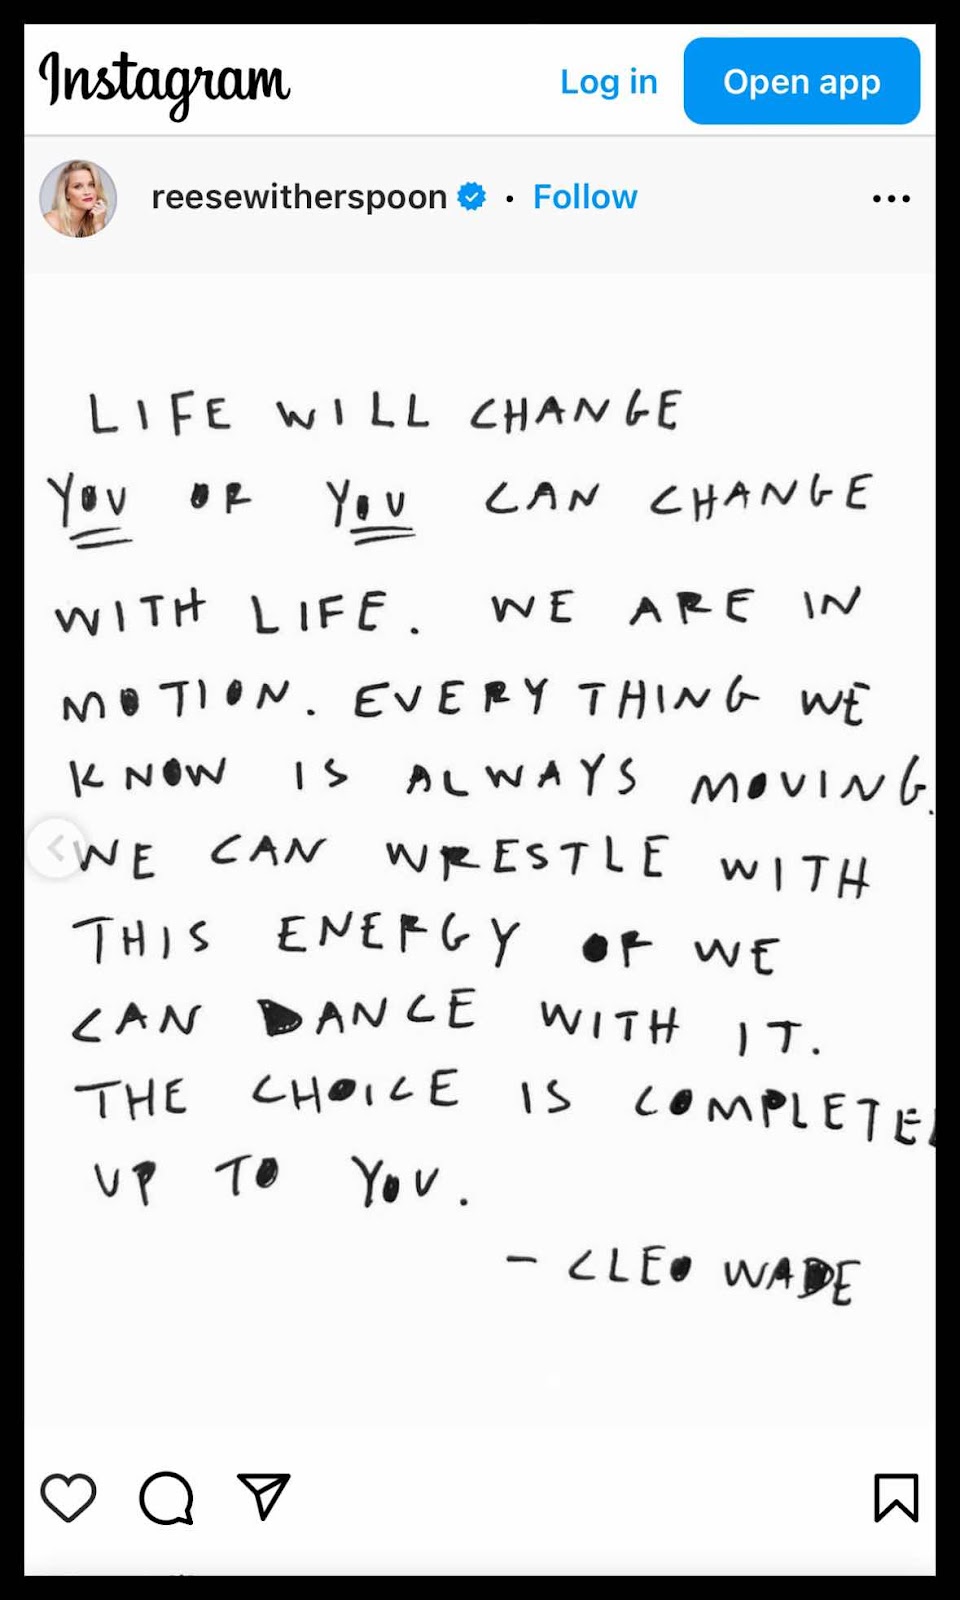 Instagram Log in Open app
reesewitherspoon · Follow
LIFE WILL CHANGE
YOU OR YOU CAN CHANGE
WITH LIFE. WE ARE IN
MOTION. EVERYTHING WE
KNOW IS ALWAYS MOVING.
WE CAN WRESTLE WITH
THIS ENERGY OR WE
CAN DANCE WITH IT.
THE CHOICE IS COMPLETEL
UP TO YOU.
- CLEO WADE